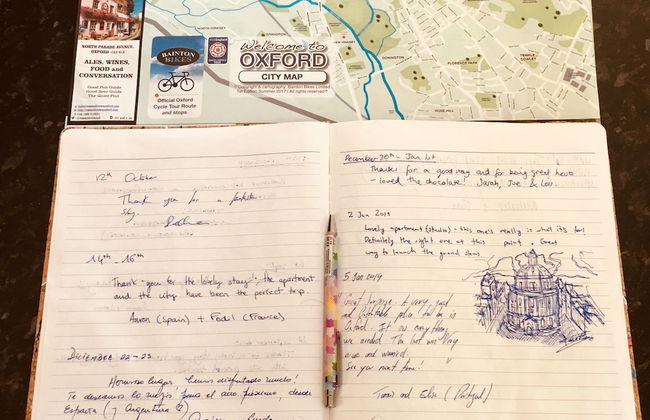 NORTH PARADE AVENUE,
OXFORD
ALES, WINES,
FOOD and
CONVERSATION
Good Pub Guide
Good Beer Guide
The Good Pint
BAINTON
BIKES
Official Oxford
Cycle Tour Route
and stops
Welcome to
OXFORD
CITY MAP
Copyright & cartography: Bainton Bikes Limited
1st Edition Summer 2017 | All rights reserved
NORTH HINKSEY
OSNEY
GRANDPONT
NEW HINKSEY
DONNINGTON
FLORENCE PARK
TEMPLE
COWLEY
ROSE HILL
12th October
Thank you for a
stay.
14th - 16th
Thank-you for the lovely stay, the apartment
and the city have been the perfect trip.
Aaron (Spain) + Fadil (France)
DICIEMBRE 22-25
Hermoso lugar, hemos disfrutado mucho!
Te deseamos lo mejor para el año próximo, desde
España (y Argentina
December 30th - Jan 1st
Thanks for a good stay and for being great hosts
- loved the chocolate! Sarah, Joe & Lois
2 Jan 2019
Lovely apartment (studio) - this one's really is what its for!
Definitely the right one at this point. Great
way to launch the grand
5 Jan 2019
Great A very good
and comfortable place to be in
Oxford. It has everything
we needed. The host was very
nice and
See you next time!
and Elsa (Portugal)